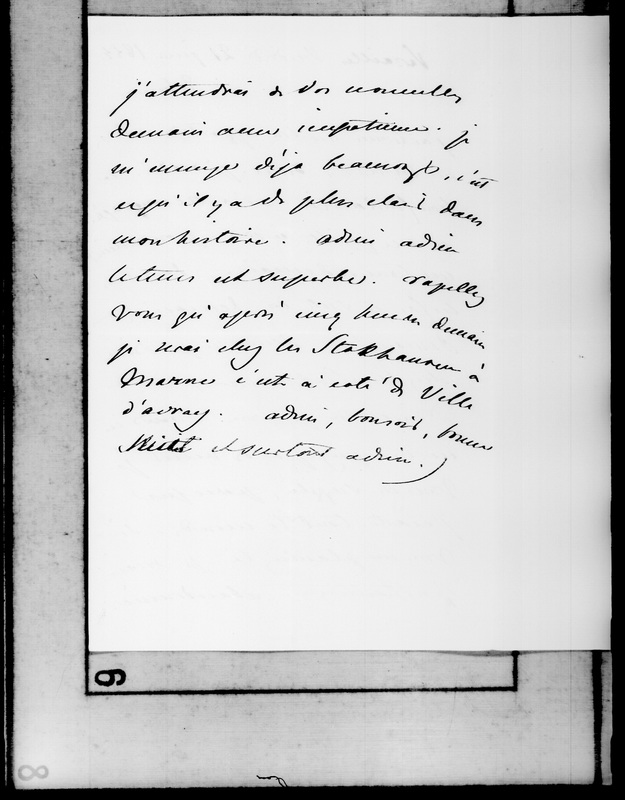 j'attendrai de vos nouvelles
demain avec impatience. je
m'ennuye déja beaucoup, c'est
ce qu'il y a de plus clair dans
mon histoire. adieu adieu
le tems est superbe. rapellez
vous qu'après cinq heures demain
je serai chez les Stokhausen à
Marne c'est à coté de Ville
d'avray. adieu, bonsoir, bonne
Nuit et surtout adieu.
6
8